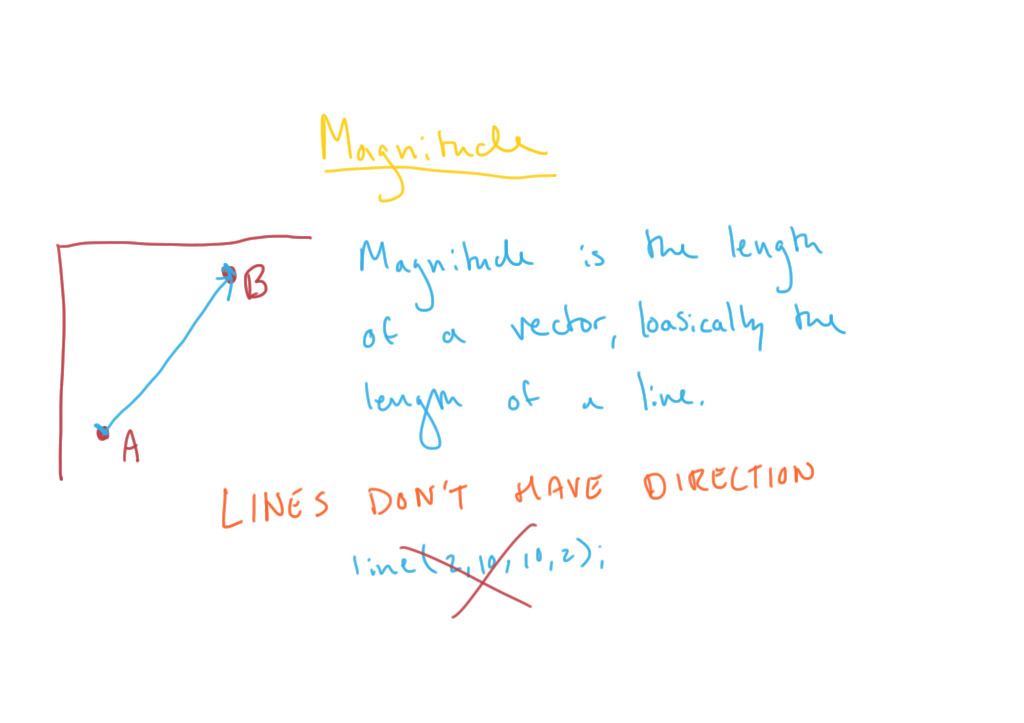 Magnitude
B
A
Magnitude is the length
of a vector, basically the
length of a line.
LINES DON'T HAVE DIRECTION
line(2,10,10,2);